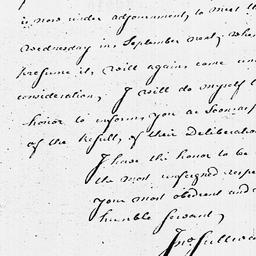 is now under adjournment, to meet t
Wednesday in September next, when
presume it, will again come und
consideration, I will do myself t
honor to inform you as soon as p
of the Result, of their Deliberation
I have the honor to be
the most unfeigned respe
your most obedient and
humble Servant,
Jno. Sulliva